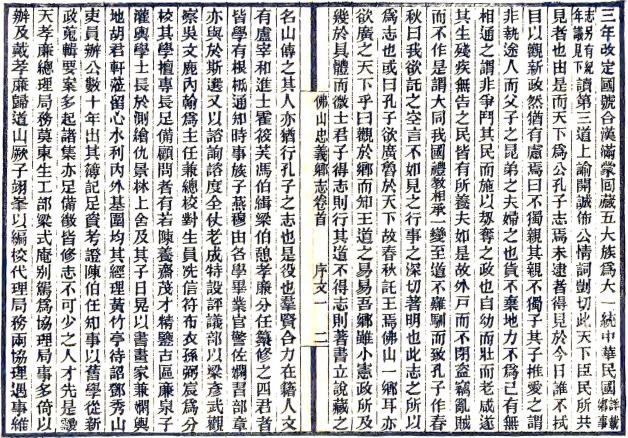 三年改定國號合漢滿蒙回藏五大族爲大一統中華民國詳載鄉事
志另有紀年議見下讀第三道上諭開誠佈公情詞剴切此天下臣民所共
見者也由是而天下爲公孔子志焉未逮者得見於今日誰不拭
目以觀新政然猶有慮焉曰不獨親其親不獨子其子推愛之謂
非執途人而父子之昆弟之夫婦之也貨不棄地力不爲己有無
相通之謂非爭鬥其民而施以刼奪之政也自幼而壯而老咸遂
其生殘疾無告之民皆有所養夫如是故外戸而不閉盜竊亂賊
而不作是謂大同我國禮教相承一變至道不難馴而致孔子作春
秋曰我欲託之空言不如見之行事之深切著明也此志之所以
爲志也或曰孔子欲廣魯於天下故春秋託王焉佛山一鄉耳亦
欲廣之天下乎曰觀於鄉而知王道之易易吾鄉雖小憲政所及
幾於具體而微士君子得志則行其道不得志則著書立說藏之
佛山忠義鄉志卷首 序文一 二
名山傳之其人亦猶行孔子之志也是役也羣賢合力在籍人文
有盧宰和進士霍筱芙馮伯緝梁伯憩孝廉分任纂修之四君者
皆學有根柢通知時事族子燕穆由各學畢業官警佐嫻習部章
亦與於斯選又以諮諏諮度全仗老成特設評議部以梁彥武觀
察吳文鹿內翰爲主任兼總校對生員冼信符布衣孫弼宸爲分
校其學擅專長足備顧問者有若陳養齋茂才精鑒古區廉泉子
灌輿學士長於測繪仇景林上舍及其子日晃以書畫家兼嫻輿
地胡君軒藩留心水利內外基圍均其經理黃竹亭待詔鄧秀山
吏員辦公數十年出其簿記足資考證陳伯任知事以舊學從新
政蒐輯要案多起諸集亦足備徵皆修志不可少之人才先是
天孝廉總理局務莫東生工部梁式庵別駕爲協理局事多倚以
辦及戴孝廉歸道山厥子翊峯以編校代理局務兩協理遇事維